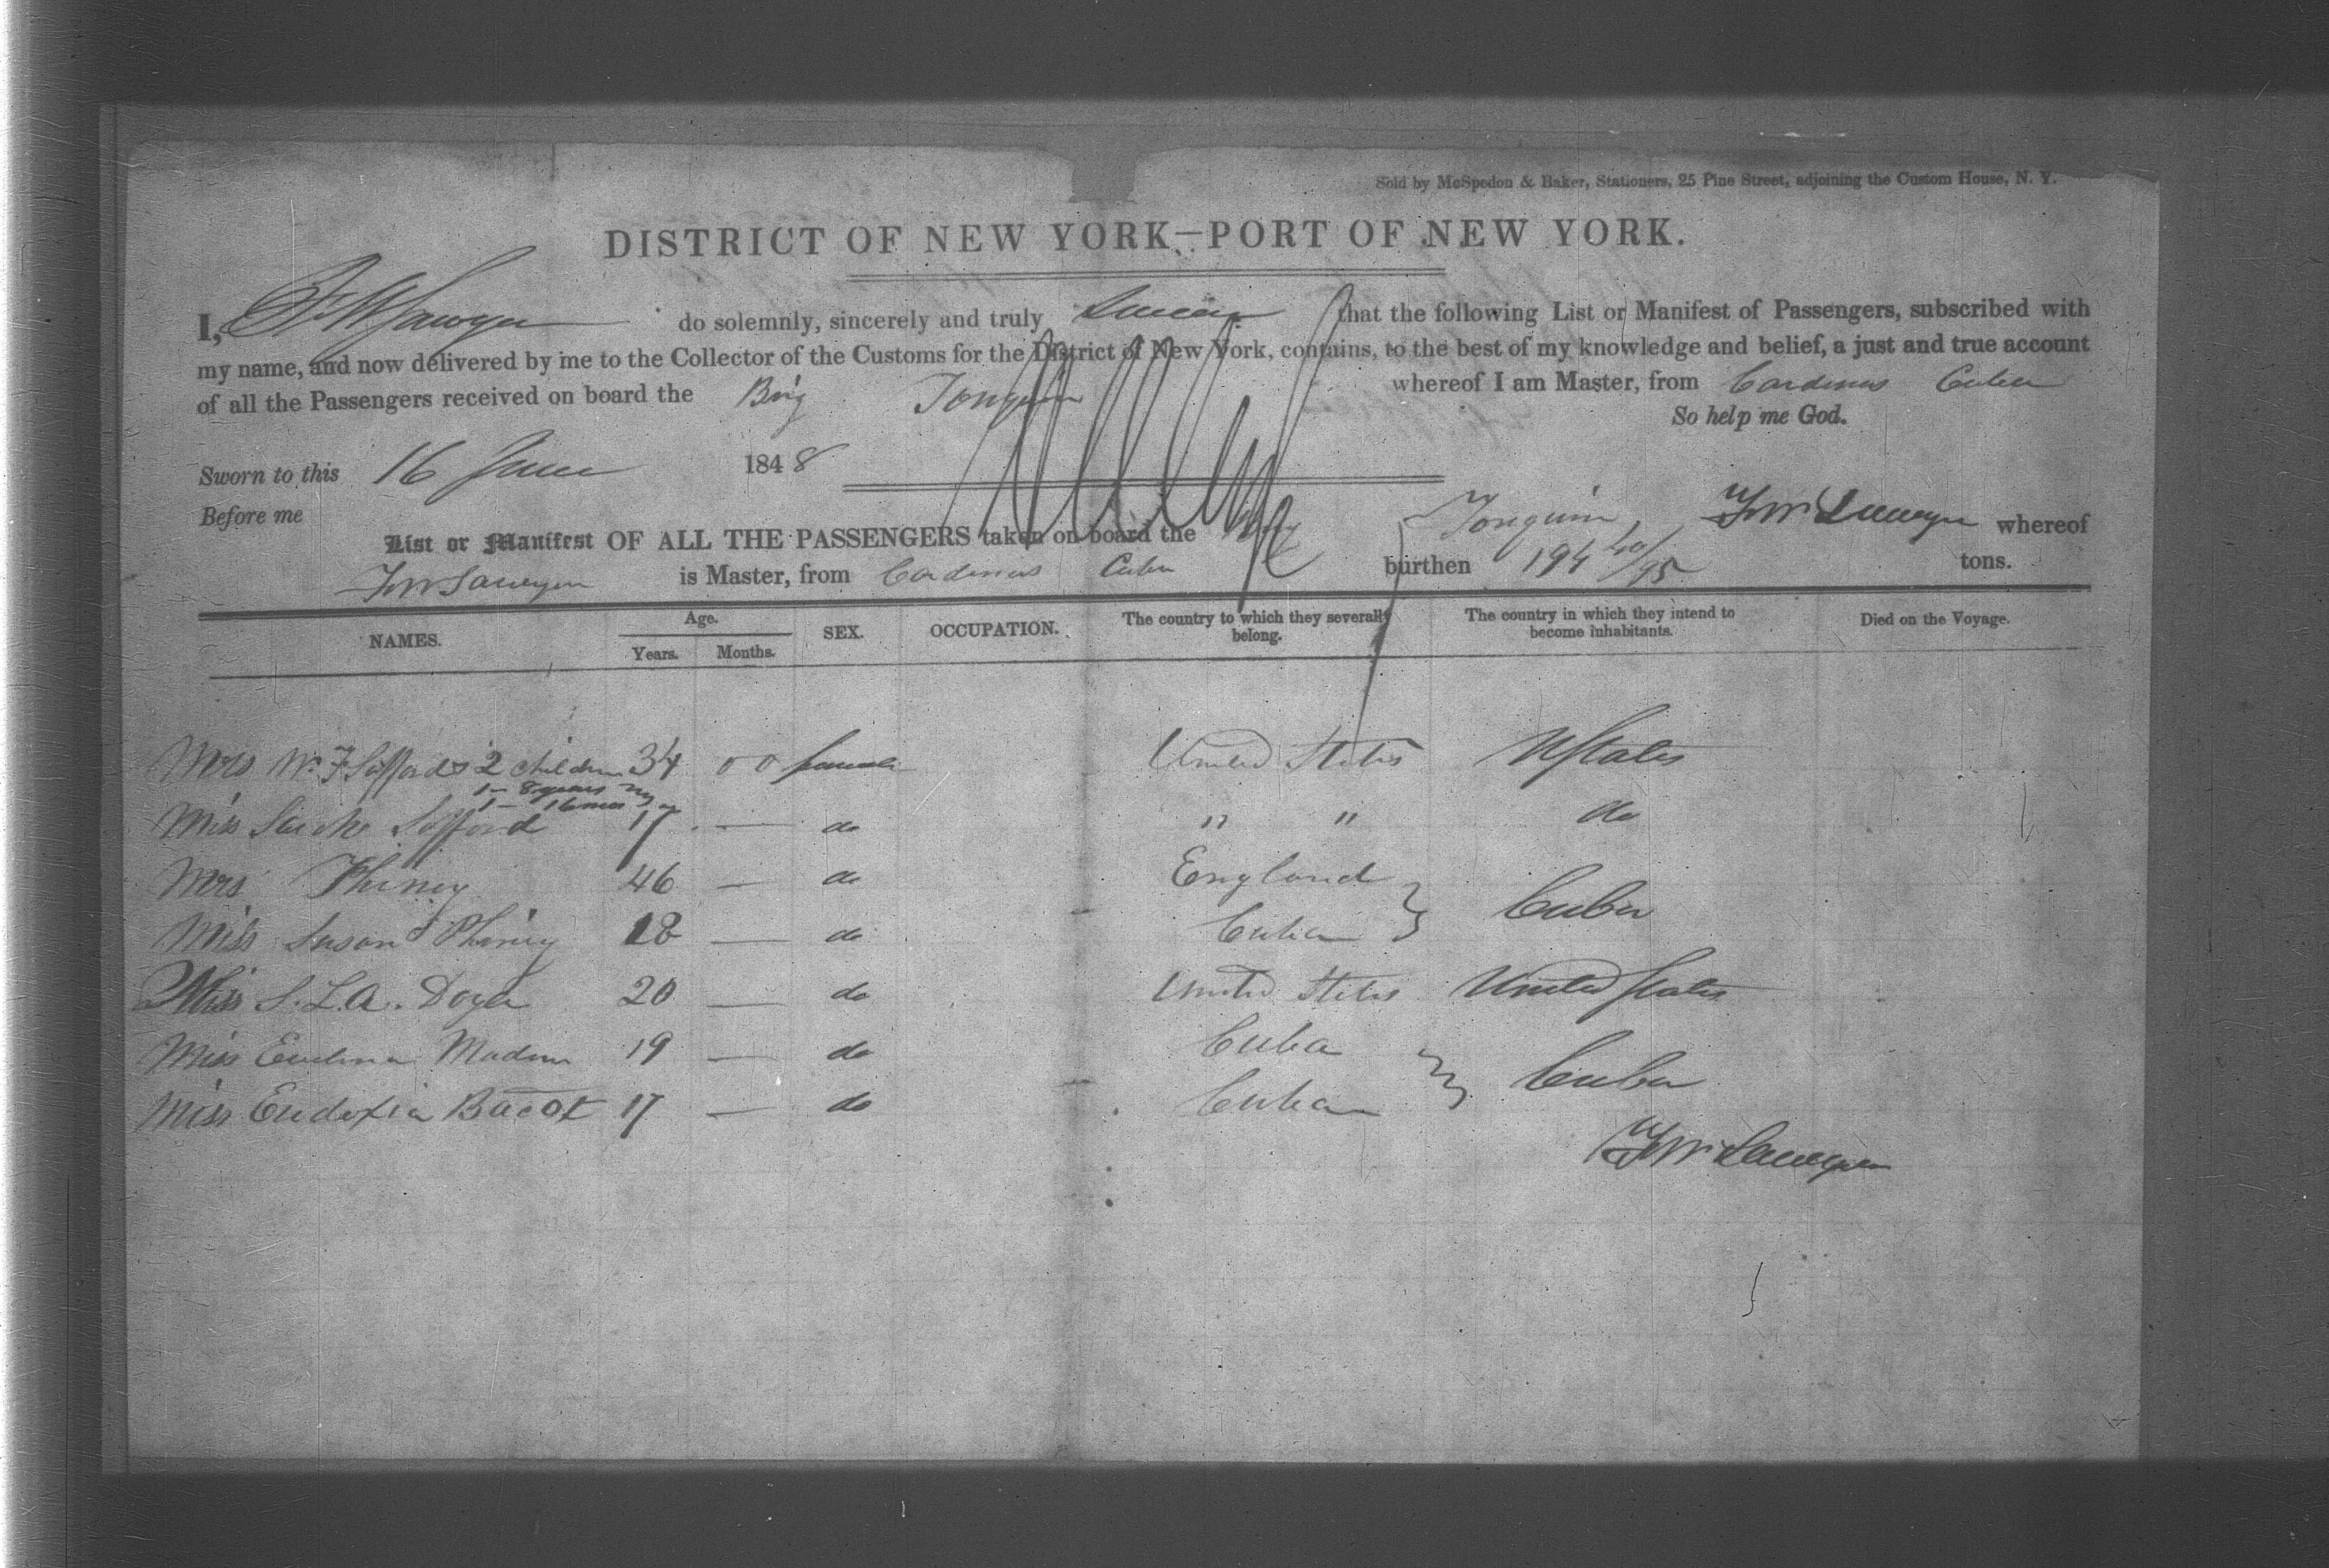 Sold by McSpedon & Baker, Stationers, 25 Pine Street, adjoining the Custom House, N. Y.
DISTRICT OF NEW YORK—PORT OF NEW YORK.
I, F W Sawyer do solemnly, sincerely and truly Swear that the following List or Manifest of Passengers, subscribed with
my name, and now delivered by me to the Collector of the Customs for the District of New York, contains, to the best of my knowledge and belief, a just and true account
of all the Passengers received on board the Brig Tonquin whereof I am Master, from Cardenas Cuba
So help me God.
Sworn to this 16 June 1848
Before me F W Sawyer
List or Manifest OF ALL THE PASSENGERS taken on board the Brig Tonquin, whereof
F W Sawyer is Master, from Cardenas Cuba burthen 194 40/95 tons.
NAMES. Age. Years. Months. SEX. OCCUPATION. The country to which they severally belong. The country in which they intend to become inhabitants. Died on the Voyage.
Mrs W. F Safford & 2 children 34 0 0 female United States U States
1 - 8 years
1 - 16 mos
Miss Safford 17 — do " " do
Mrs Phiney 46 — do England
Miss Susan Phiney 18 — do Cuba } Cuba
Miss S. L. A. Doyer 20 — do United States United States
Miss Madan 19 — do Cuba
Miss Eudoxia Bacot 17 — do Cuba } Cuba
F W Sawyer